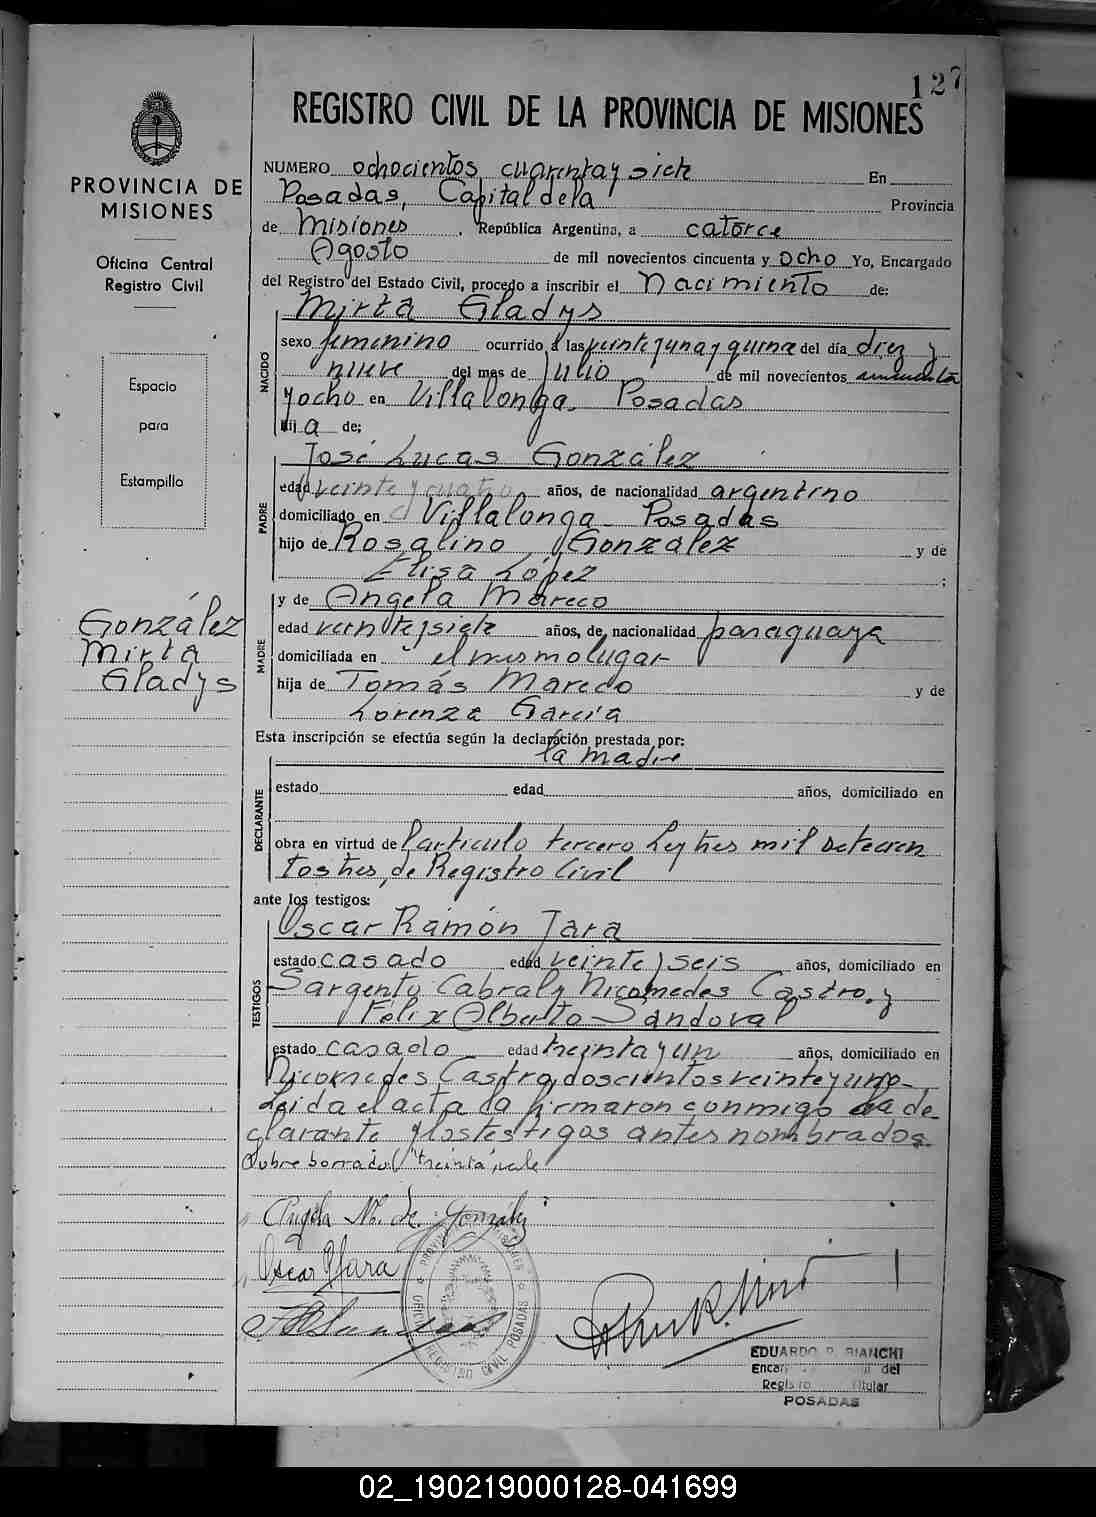 127
REGISTRO CIVIL DE LA PROVINCIA DE MISIONES
PROVINCIA DE
MISIONES
Oficina Central
Registro Civil
Espacio
para
Estampilla
González
Mirta
Gladys
NUMERO ochocientos cuarenta y siete En
Posadas, Capital de la Provincia
de Misiones, República Argentina, a catorce
Agosto de mil novecientos cincuenta y ocho Yo, Encargado
del Registro del Estado Civil, procedo a inscribir el Nacimiento de:
NACIDO
Mirta Gladys
sexo femenino ocurrido a las veinte y una y quince del día diez y
nueve del mes de Julio de mil novecientos cincuenta
y ocho en Villalonga. Posadas
hija de;
PADRE
José Lucas González
edad veinte y cuatro años, de nacionalidad argentino
domiciliado en Villalonga - Posadas
hijo de Rosalino González y de
Elisa López ;
MADRE
y de Angela Mareco
edad veinte y siete años, de nacionalidad paraguaya
domiciliada en el mismo lugar
hija de Tomás Mareco y de
Lorenza García
Esta inscripción se efectúa según la declaración prestada por:
la madre
DECLARANTE
estado edad años, domiciliado en
obra en virtud de l'articulo tercero Ley tres mil setecien
tos tres, de Registro Civil
ante los testigos:
TESTIGOS
Oscar Ramón Jara
estado casado edad veinte y seis años, domiciliado en
Sargento Cabral y Nicomedes Castro. y
Félix Alberto Sandoval
estado casado edad treinta y un años, domiciliado en
Nicomedes Castro, doscientos veinte y uno-
Leida el acta la firmaron conmigo la de-
clarante y los testigos antes nombrados.
Sobre borrado "treinta" vale
Angela M. de González
Oscar R Jara
PROVINCIA DE MISIONES
REGISTRO CIVIL POSADAS
EDUARDO R. BIANCHI
del
Registro Titular
POSADAS
02_190219000128-041699